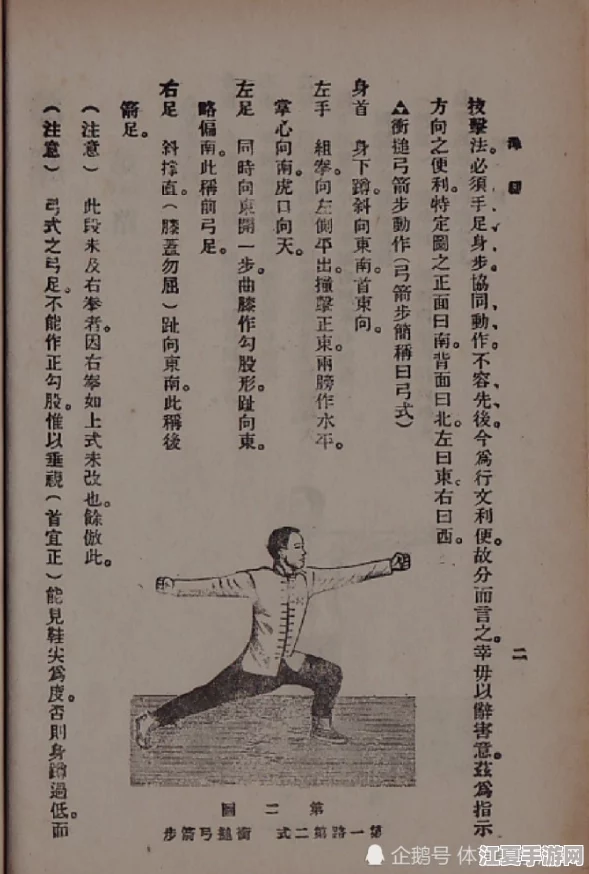 潭 圖
二
技擊法。必須手足身步。協同動作。不容先後。今爲行文利便。故分而言之。幸毋以辭害意。茲爲指示
方向之便利。特定圖之正面曰南。背面曰北。左曰東。右曰西。
衝搥弓箭步動作(弓箭步簡稱曰弓式)
身首 身下蹲。斜向東南。首東向。
左手 組拳向左側平出。撞擊正東。兩膀作水平。
掌心向南。虎口向天。
左足 同時向東開一步。曲膝作勾股形。趾向東。
略偏南。此稱前弓足。
右足 斜撐直。(膝蓋勿屈)趾向東南。此稱後
箭足。
(注意) 此段未及右拳者。因右拳如上式未改也。餘倣此。
(注意) 弓式之弓足。不能作正勾股。惟以垂視(首宜正)能見鞋尖爲度。否則身蹲過低。而
第二圖
第一路第二式 衝搥弓箭步
企鹅号 体
江夏手游网